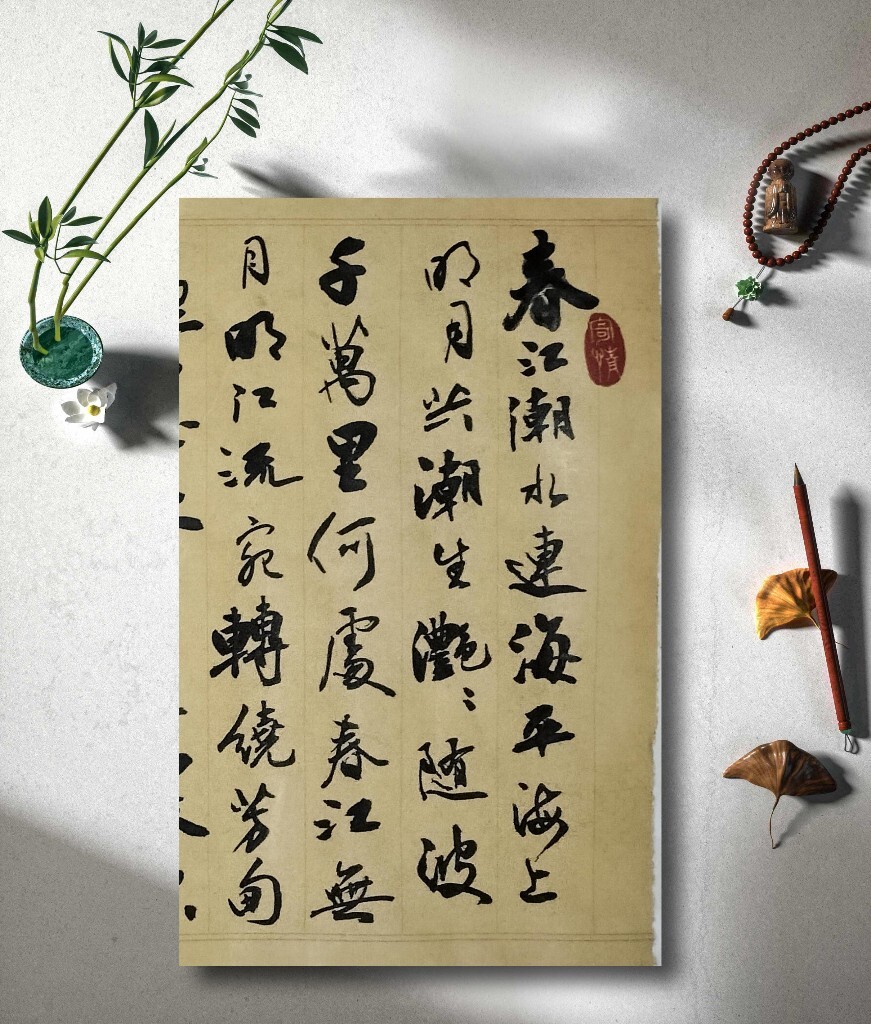 春江潮水連海平海上
明月共潮生灔〻随波
千萬里何處春江無
月明江流宛轉繞芳甸